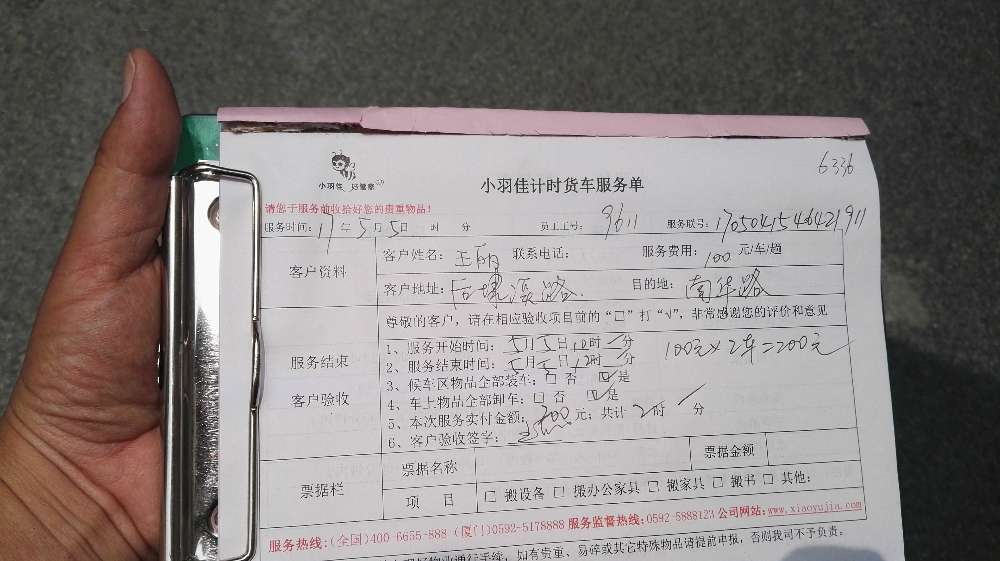 6336
小羽佳 好管家
小羽佳计时货车服务单
请您于服务前收拾好您的贵重物品!
服务时间: 17年5月5日 时 分 员工工号: 9611 服务联号: 1705041546421911
客户资料
客户姓名: 王丽 联系电话: 服务费用: 100 元/车/趟
客户地址: 后埭溪路 目的地: 南华路
服务结束
客户验收
尊敬的客户, 请在相应验收项目前的“□”打“√”, 非常感谢您的评价和意见
1、服务开始时间: 5月5日10时 分
2、服务结束时间: 5月5日12时 分
100元×2车=200元
3、候车区物品全部装车: □ 否 ☑是
4、车上物品全部卸车: □ 否 ☑是
5、本次服务实付金额: 200元; 共计2时 分
6、客户验收签字:
票据栏
票据名称 票据金额
项 目 □ 搬设备 □ 搬办公家具 □ 搬家具 □ 搬书 □ 其他:
服务热线:(全国)400-6655-888 (厦门)0592-5178888 服务监督热线:0592-5888123 公司网站:www.xiaoyujia.com
通行手续, 如有贵重、易碎或其它特殊物品请提前申报, 否则我司不予负责。